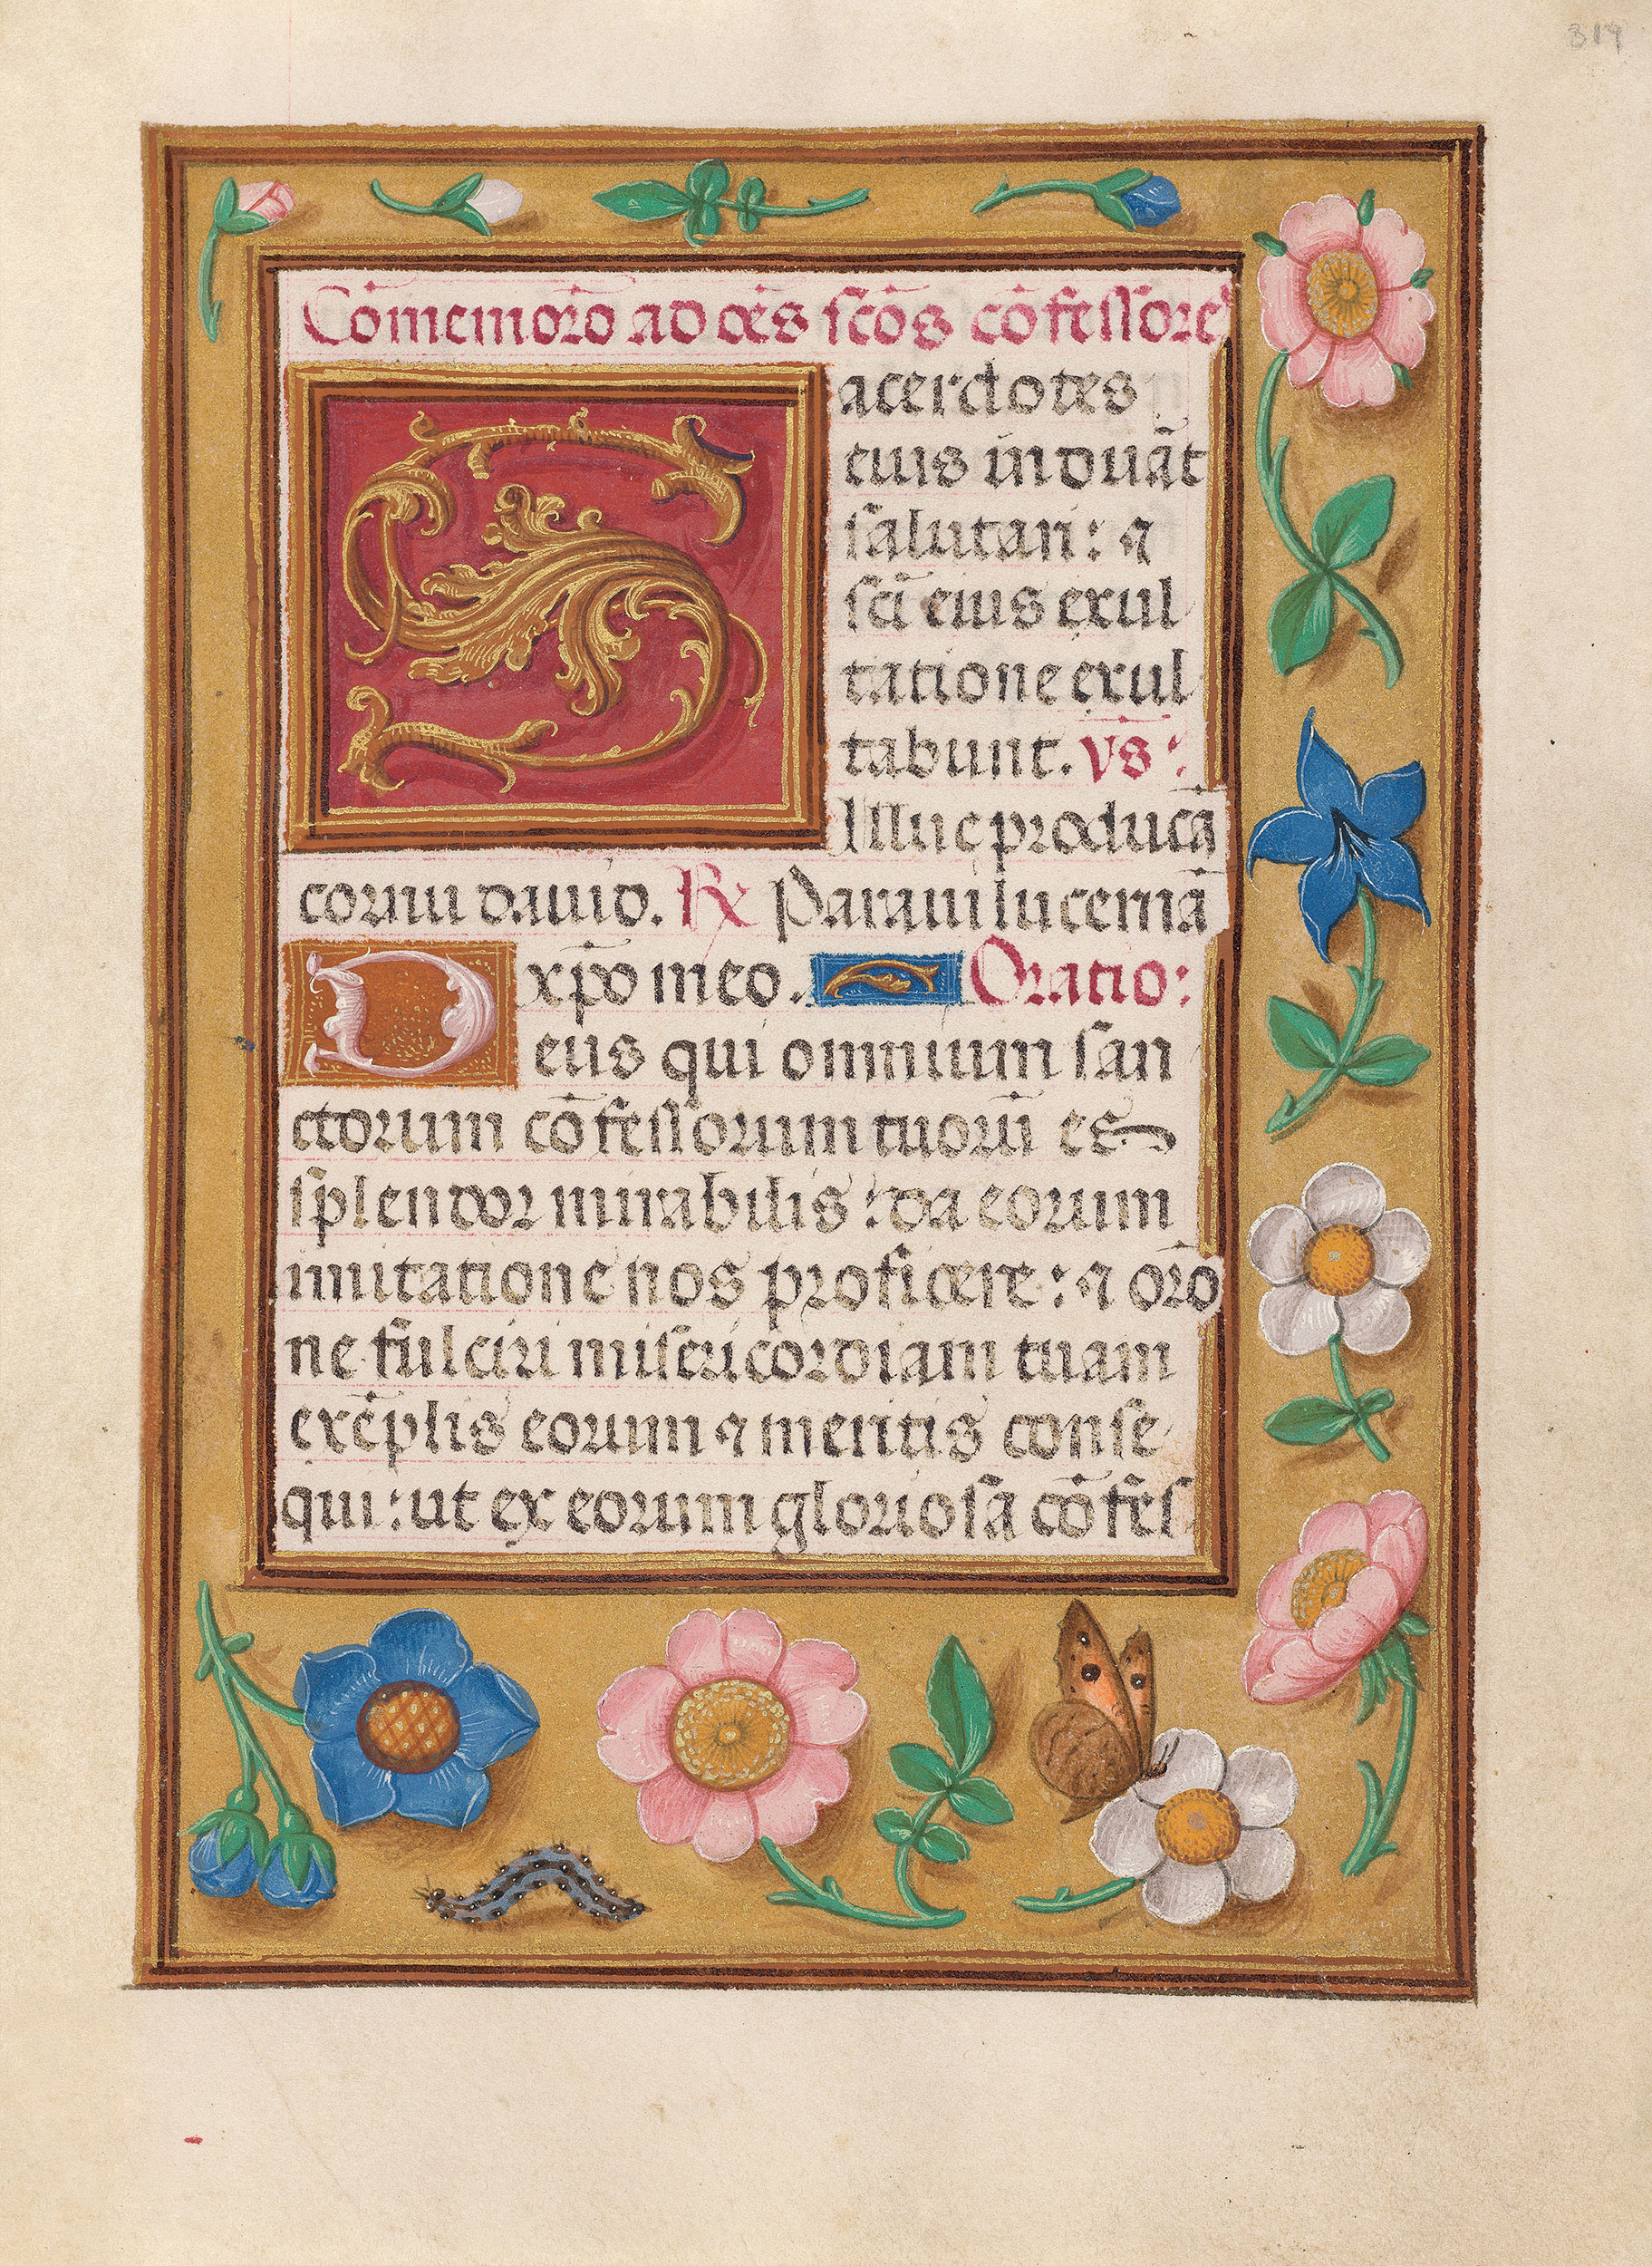 319
Cōmemorō ad oēs scōs cōfessores
Sacerdotes
eius induāt
salutari: ⁊
scī eius exul
tatione exul
tabunt. vs:
Illuc producā
cornu dauid. ℞ Paraui lucernā
xp̄o meo. Oratio:
Deus qui omnium san
ctorum cōfessorum tuorū es
splendor mirabilis: da eorum
imitatione nos proficere: ⁊ orō
ne fulciri misericordiam tuam
exēplis eorum ⁊ meritis conse
qui: ut ex eorum gloriosa cōfes